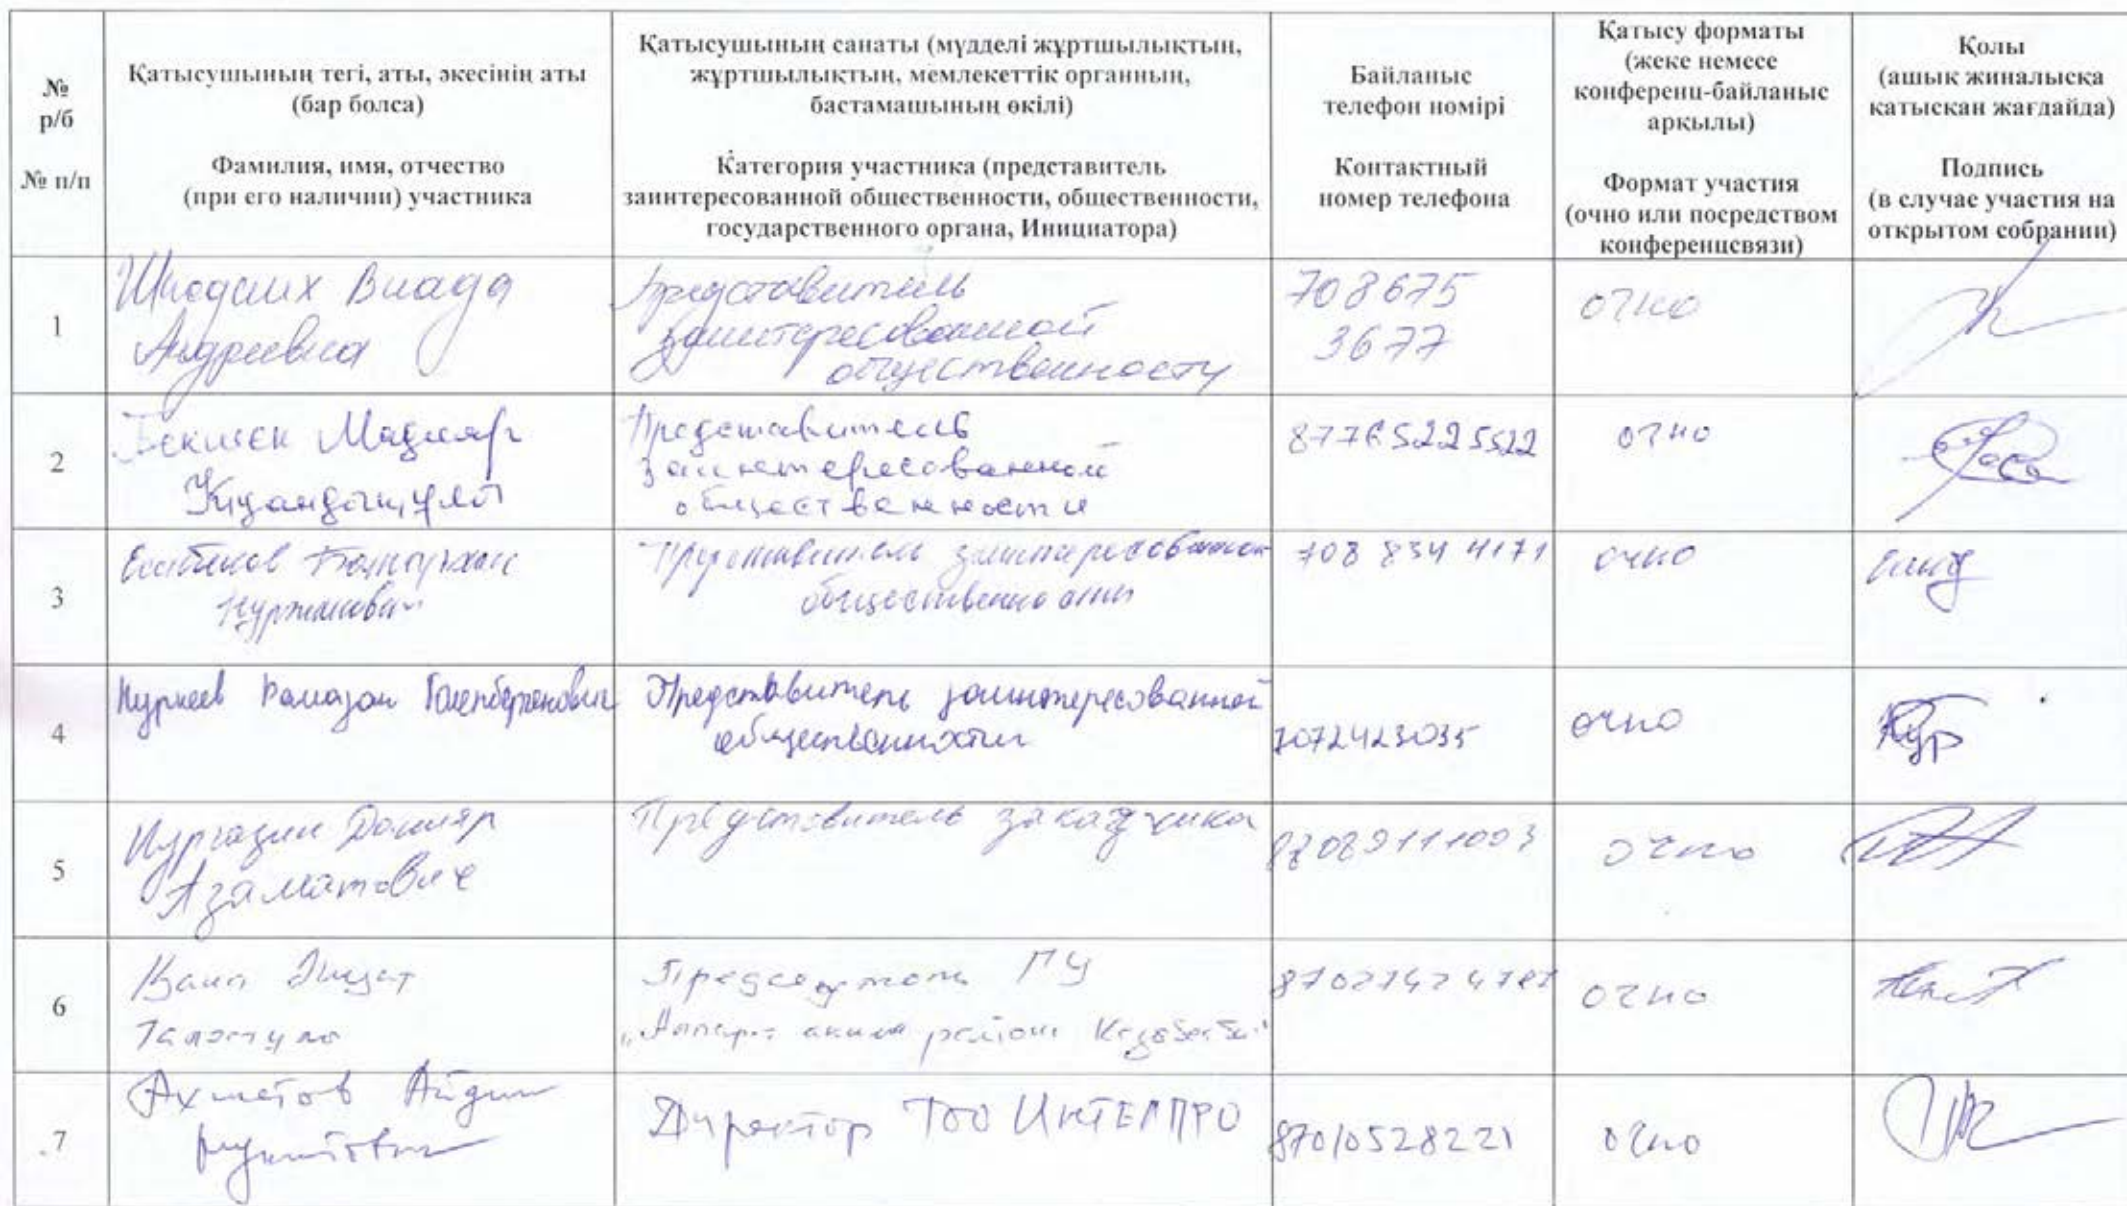 №
р/б
№ п/п
Қатысушының тегі, аты, әкесінің аты
(бар болса)
Фамилия, имя, отчество
(при его наличии) участника
Қатысушының санаты (мүдделі жұртшылықтың,
жұртшылықтың, мемлекеттік органның,
бастамашының өкілі)
Категория участника (представитель
заинтересованной общественности, общественности,
государственного органа, Инициатора)
Байланыс
телефон нөмірі
Контактный
номер телефона
Қатысу форматы
(жеке немесе
конференц-байланыс
арқылы)
Формат участия
(очно или посредством
конференцсвязи)
Қолы
(ашық жиналысқа
қатысқан жағдайда)
Подпись
(в случае участия на
открытом собрании)
1
Влада
Андреевна
Представитель
заинтересованной
общественности
708675
3677
очно
2
Мадияр
Представитель
заинтересованной
общественности
87765225522
очно
3
Представитель заинтересованной
общественности
708 834 4171
очно
4
Нуркеев Рамазан
Представитель заинтересованной
общественности
7072423035
очно
5
Нургазин Данияр
Азаматович
Представитель заказчика
87089111003
очно
6
ГУ
очно
7
Ахметов Айдин
Директор ТОО ИНТЕЛПРО
87010528221
очно